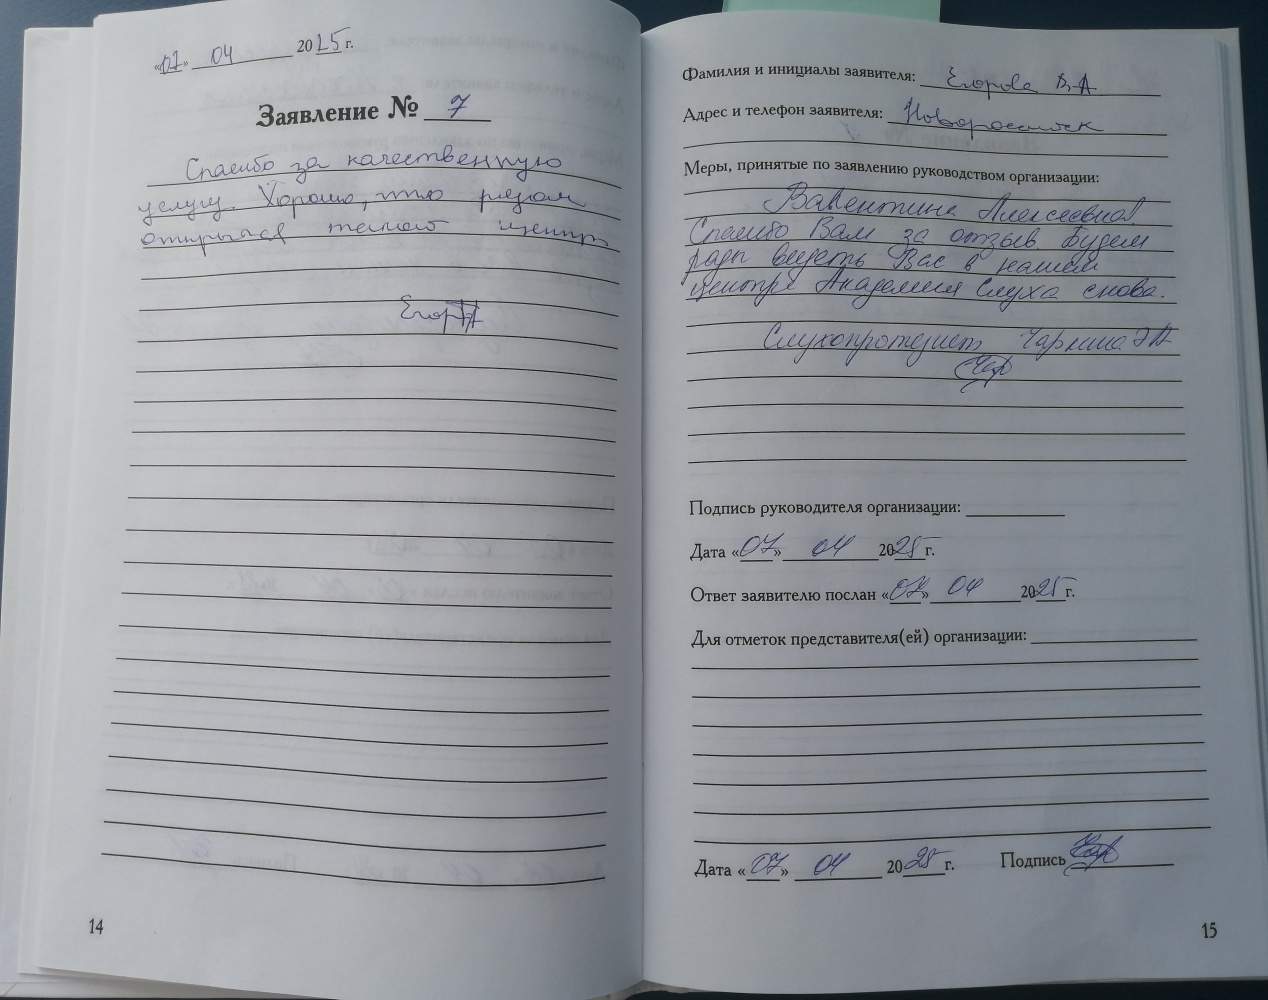 «07» 04 2025 г.
Заявление № 7
Спасибо за качественную
услугу. Хорошо, что рядом
открылся такой центр
Егор
14
Фамилия и инициалы заявителя: Егорова В.А
Адрес и телефон заявителя: Новороссийск
Меры, принятые по заявлению руководством организации:
Валентина Алексеевна!
Спасибо Вам за отзыв. Будем
рады видеть Вас в нашем
центре Академия Слуха снова.
Слухопротезист Чаркина Э.А
Подпись руководителя организации:
Дата «07» 04 2025 г.
Ответ заявителю послан «07» 04 2025 г.
Для отметок представителя(ей) организации:
Дата «07» 04 2025 г. Подпись
15